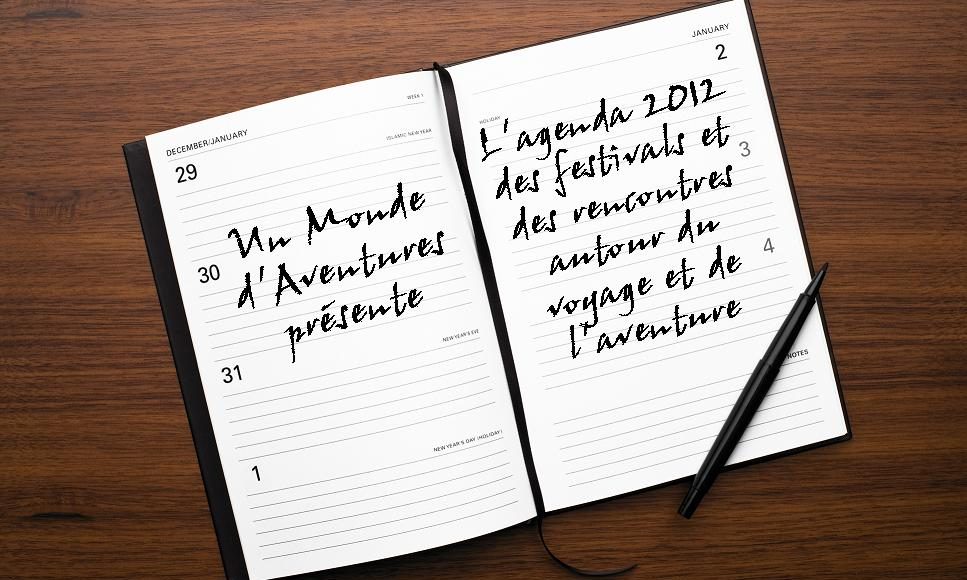 DECEMBER/JANUARY
WEEK 1
29
ISLAMIC NEW YEAR
Un Monde
30
d'Aventures
présente
31
NEW YEAR'S EVE
1
NEW YEAR'S DAY (HOLIDAY)
JANUARY
2
HOLIDAY
L'agenda 2012
des festivals et
3
des rencontres
autour du
4
voyage et de
l'aventure
NOTES